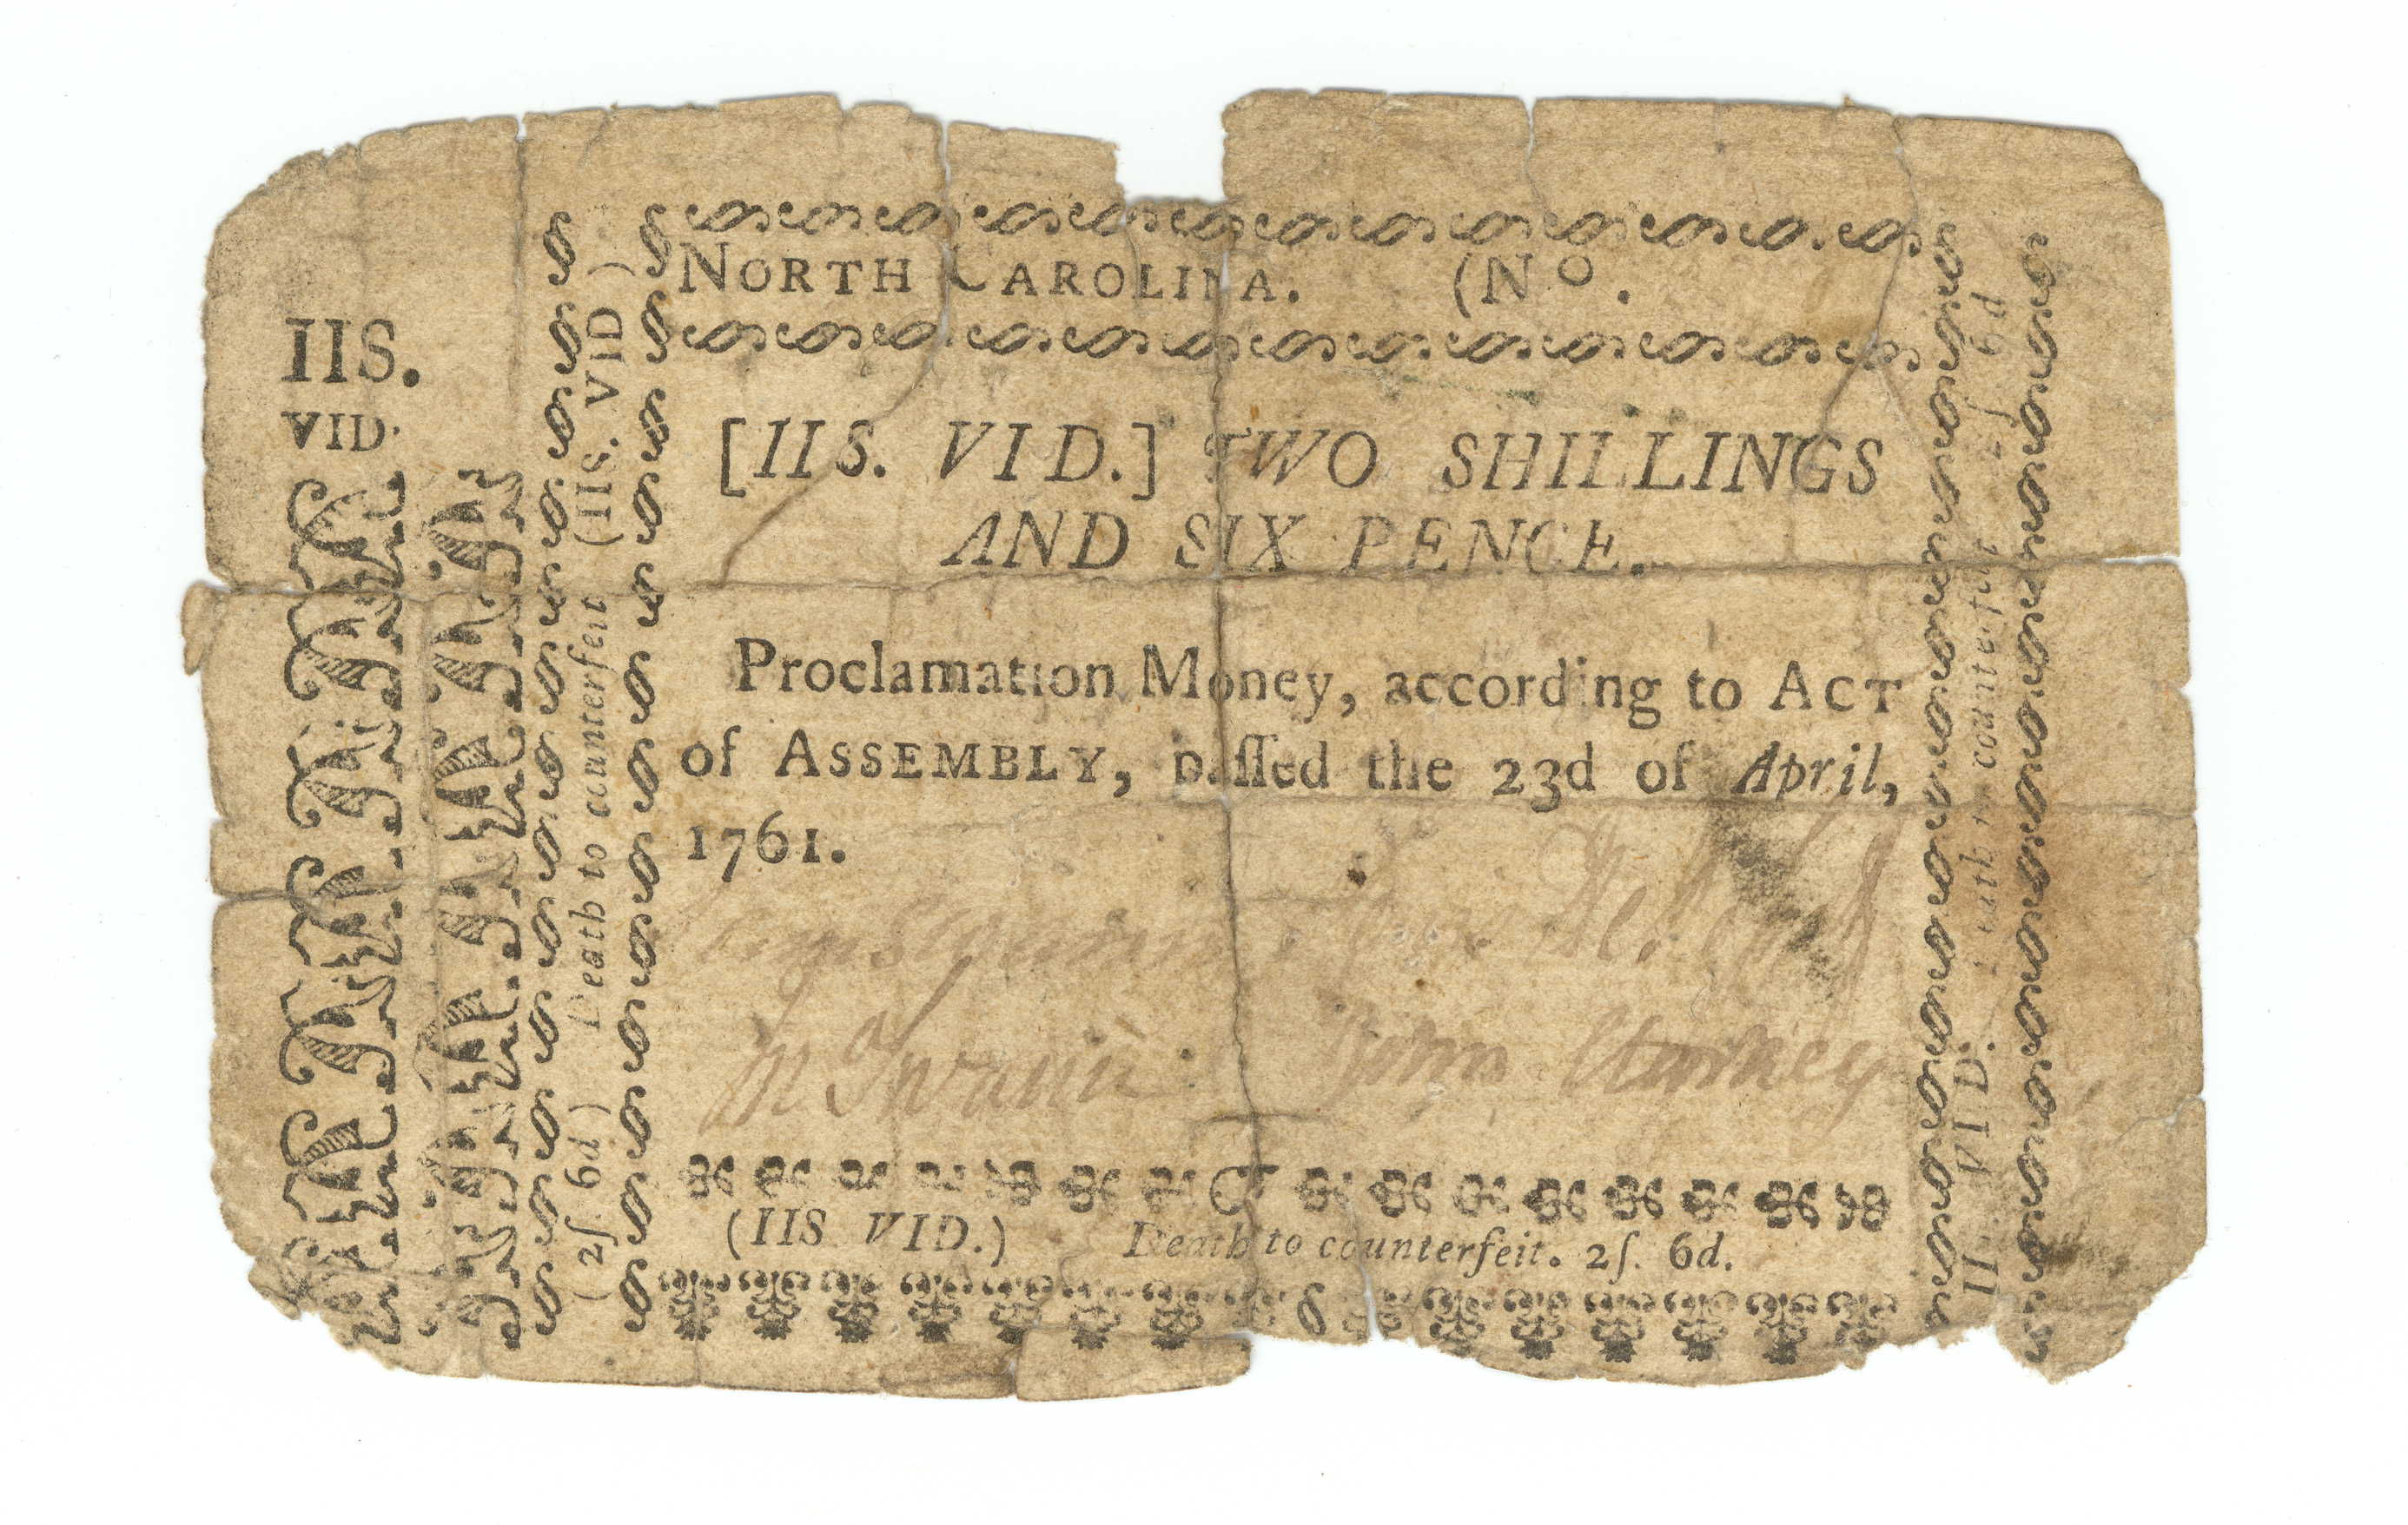 IIS.
VID.
(2ſ. 6d) Death to counterfeit (IIS. VID)
NORTH CAROLINA. (No.
[IIS. VID.] TWO SHILLINGS
AND SIX PENCE.
Proclamation Money, according to ACT
of ASSEMBLY, paſſed the 23d of April,
1761.
Swann John Starkey
(IIS VID.) Death to counterfeit. 2ſ. 6d.
II VID. Death to counterfeit 2ſ 6d